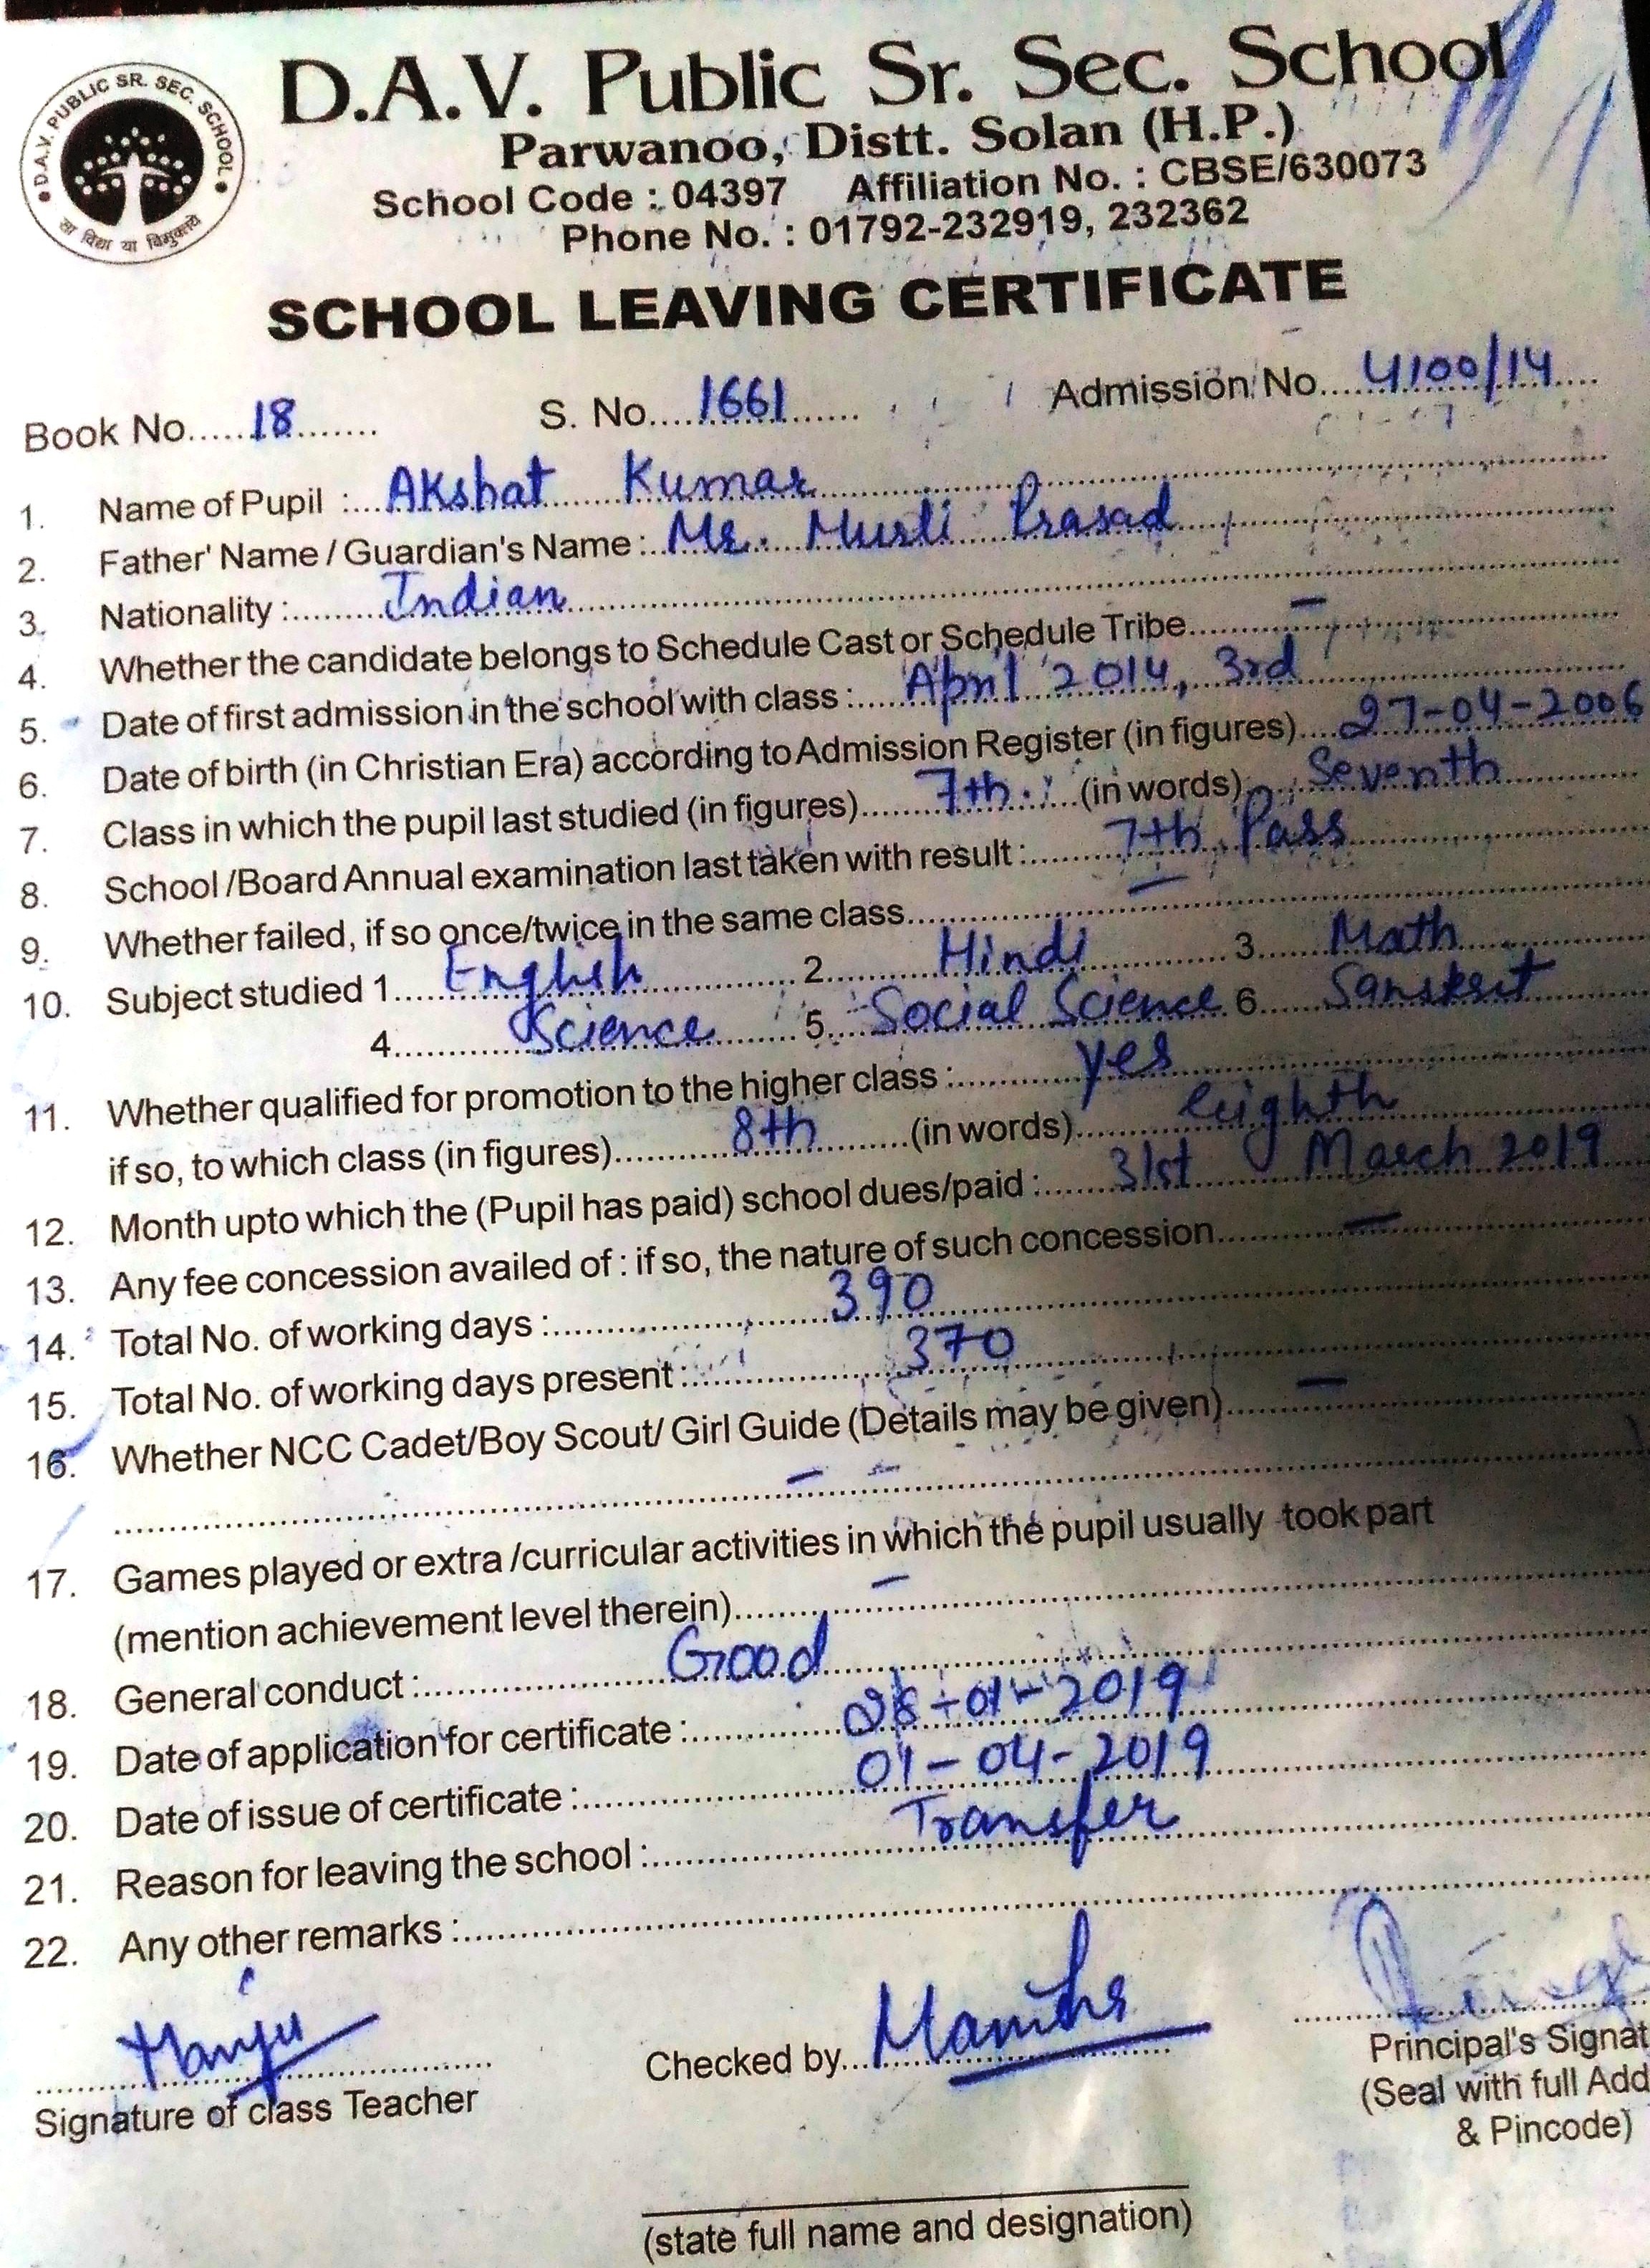 D.A.V. PUBLIC SR. SEC. SCHOOL
सा विद्या या विमुक्तये
D.A.V. Public Sr. Sec. School
Parwanoo, Distt. Solan (H.P.)
School Code : 04397 Affiliation No. : CBSE/630073
Phone No. : 01792-232919, 232362
SCHOOL LEAVING CERTIFICATE
Book No......18....... S. No....1661....... Admission No....4100/14....
1. Name of Pupil :...Akshat Kumar
2. Father' Name / Guardian's Name :..Mr. Murli Prasad
3. Nationality :.........Indian
4. Whether the candidate belongs to Schedule Cast or Schedule Tribe.........—
5. Date of first admission in the school with class :....April 2014, 3rd
6. Date of birth (in Christian Era) according to Admission Register (in figures)....27-04-2006
7. Class in which the pupil last studied (in figures)......7th......(in words)....Seventh
8. School /Board Annual examination last taken with result :.......7th Pass
9. Whether failed, if so once/twice in the same class.........—
10. Subject studied 1....English.........2.......Hindi.........3.....Math
4.........Science.......5...Social Science.6.....Sanskrit
11. Whether qualified for promotion to the higher class :.........yes
if so, to which class (in figures).........8th.......(in words).......eighth
12. Month upto which the (Pupil has paid) school dues/paid :......31st March 2019
13. Any fee concession availed of : if so, the nature of such concession.........—
14. Total No. of working days :.........390
15. Total No. of working days present :.........370
16. Whether NCC Cadet/Boy Scout/ Girl Guide (Details may be given).......—
.........— —
17. Games played or extra /curricular activities in which the pupil usually took part
(mention achievement level therein).........—
18. General conduct :.........Good
19. Date of application for certificate :.........-01-2019
20. Date of issue of certificate :.........01-04-2019
21. Reason for leaving the school :.........Transfer
22. Any other remarks :.........
Manju
Signature of class Teacher
Checked by...
Principal's Signat
(Seal with full Add
& Pincode)
(state full name and designation)